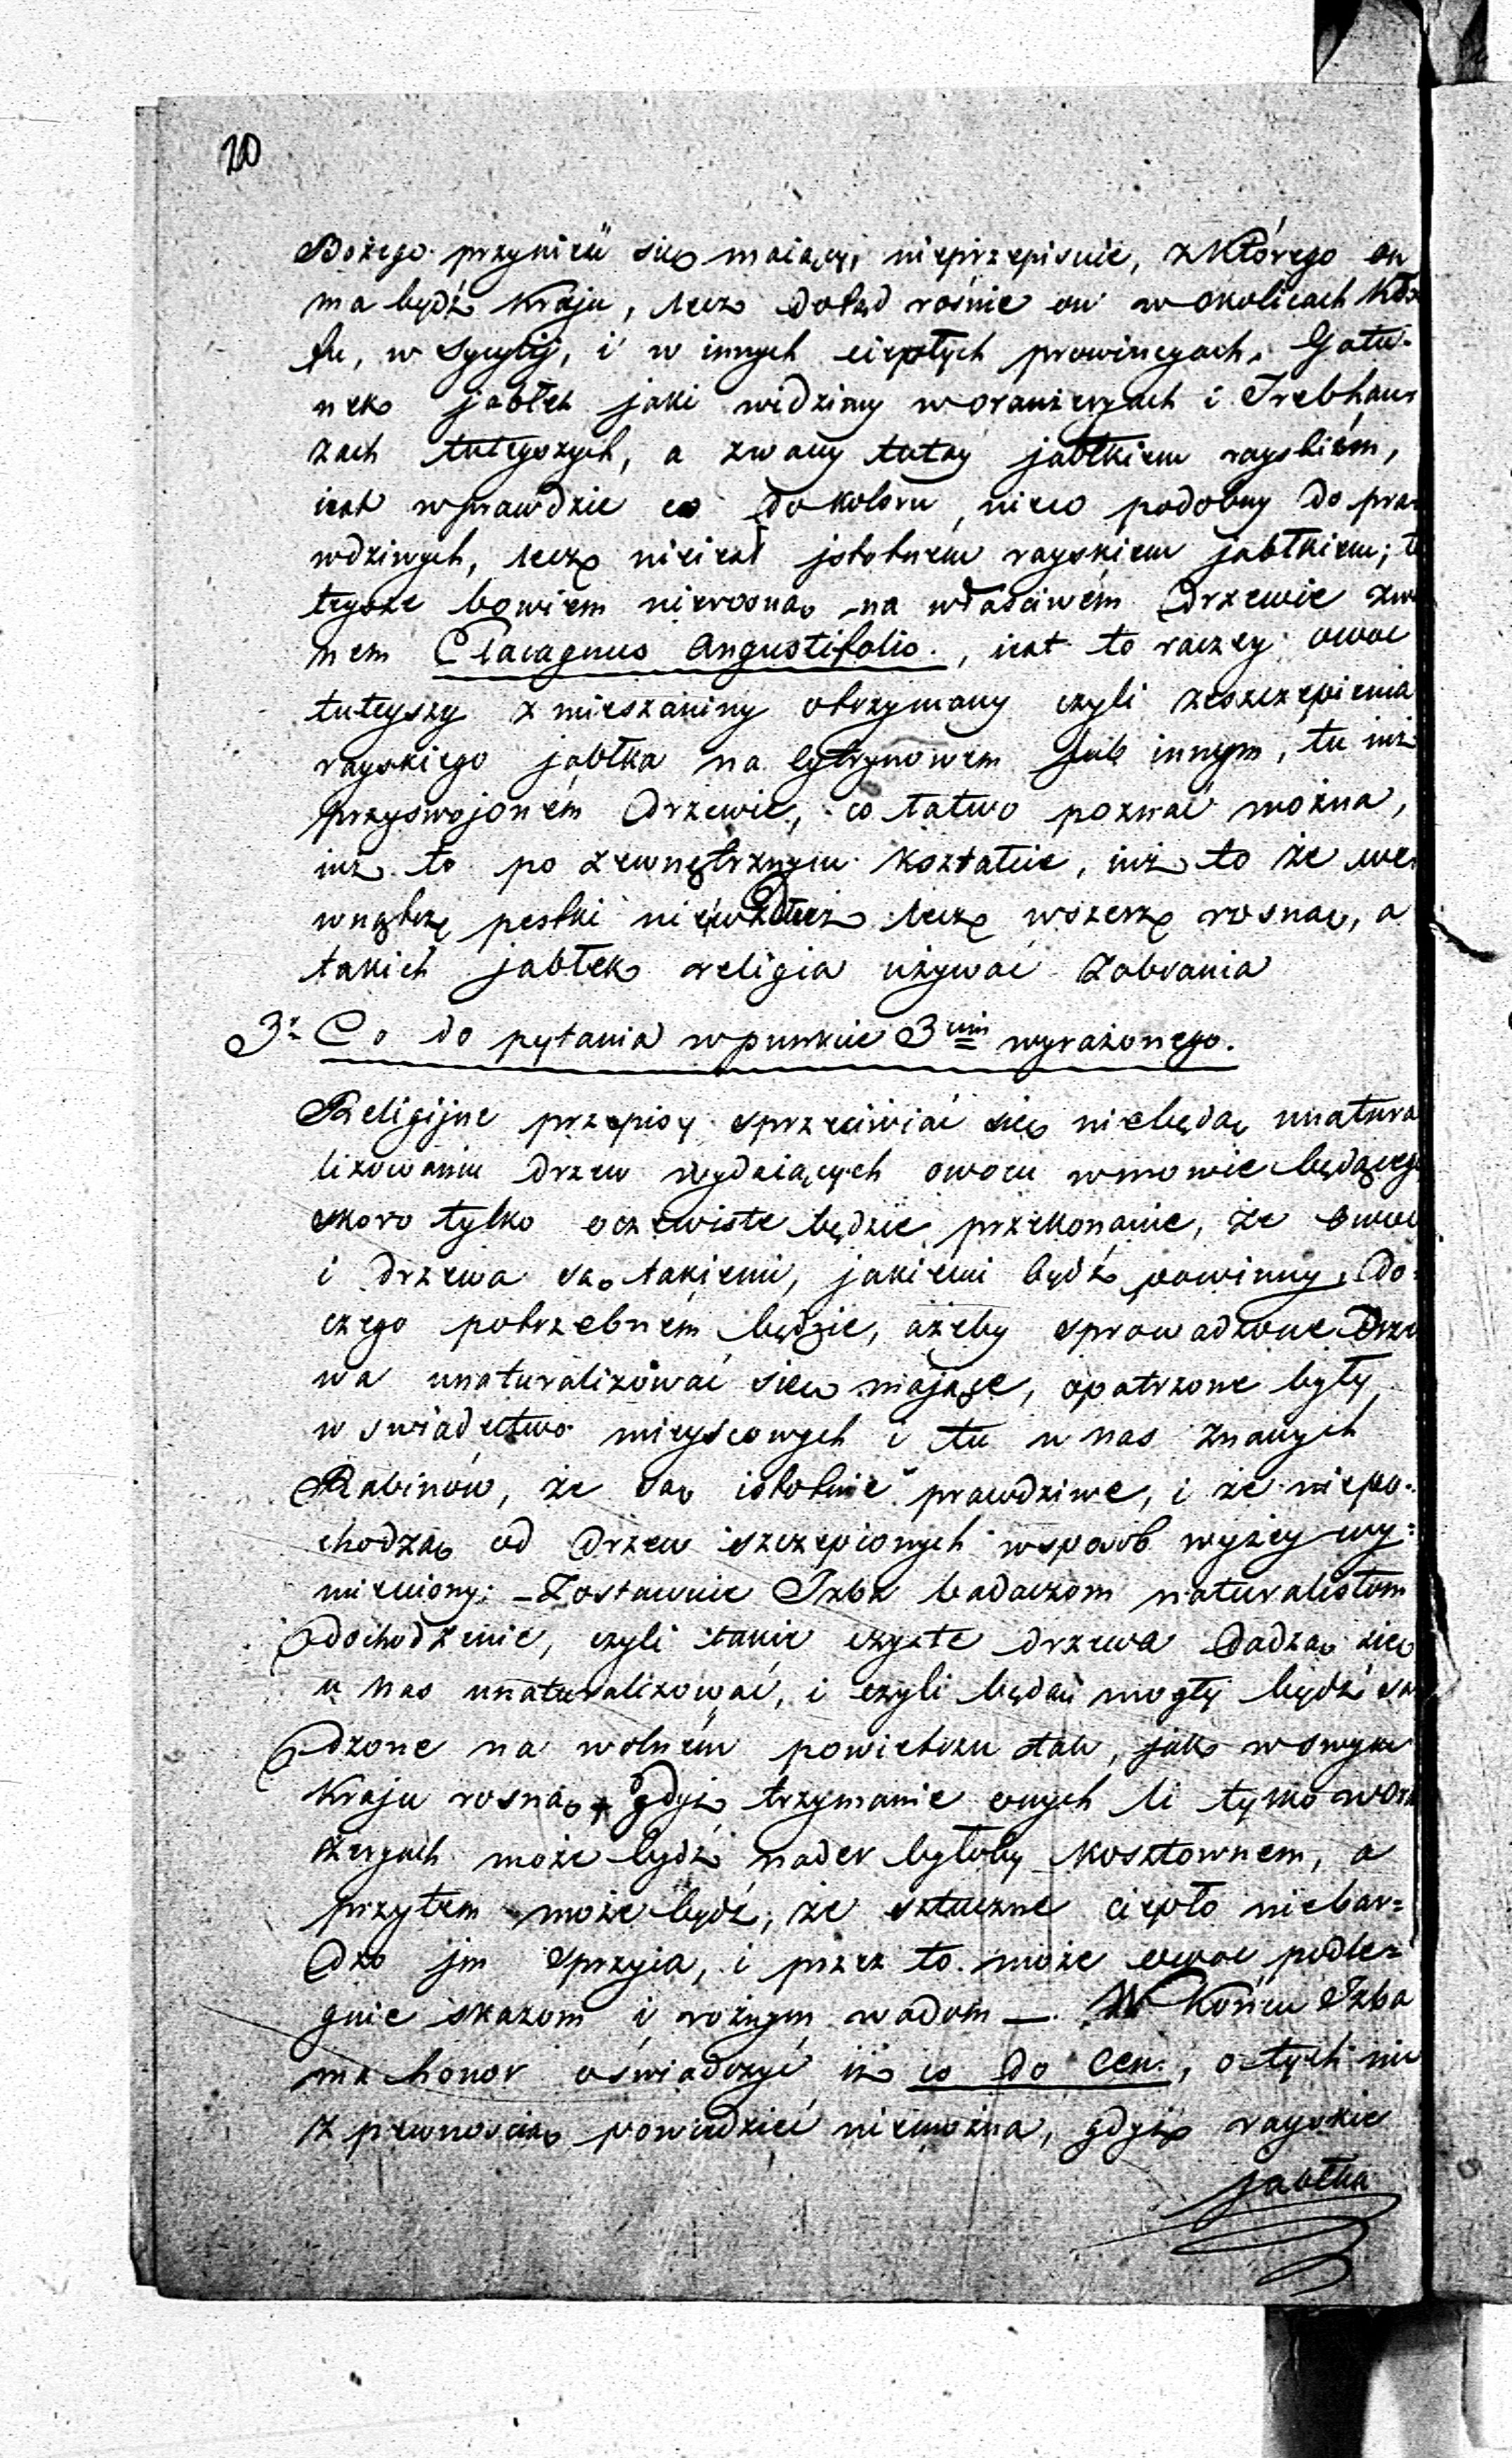 20
Bożego przynieść się maiący, nieprzepisuie, z którego on
ma będź kraju, lecz dotąd rośnie on w okolicach
fu, w Sycylij, i w innych ciepłych prowincyach. Gatu-
nek jabłek jaki widzimy w oranżeryach i Trebhauz
zach tuteyszych, a zwany tutay jabłkiem rayskiém,
iest wprawdzie co do koloru, nieco podobny do pra-
wdziwych, lecz nieiest jstotném rayskiem jabłkiem; tu
teysze bowiem nierosną na właściwém drzewie zwa
nem Elaeagnus Angustifolio., iest to raczey owoc
tuteyszy z mieszaniny otrzymany czyli zeszczepienia
rayskiego jabłka na cytrynowem lub innym, tu iuż
przyswojoném drzewie, co łatwo poznać można,
iuż to po zewnętrznym kształcie, iuż to że we-
wnątrz pestki niewzdłuż lecz wszerz rosną, a
takich jabłek religia używać zabrania
3. Co do pytania w punkcie 3cim wyrażonego.
Religijne przepisy sprzeciwiać się niebędą unatura
lizowaniu drzew wydaiących owocu w mowie będącego
skoro tylko oczewiste będzie przekonanie, że owoc
i drzewa są takiemi, jakiemi będź powinny. Do-
czego potrzebném będzie, ażeby sprowadzone drze
wa unaturalizować się mające, opatrzone były
w świadectwo mieyscowych i tu u nas znanych
Rabinów, że są istotnie prawdziwe, i że niepo-
chodzą od drzew szczepionych w sposób wyżey wy-
mieniony: – Zostawuie Izba badaczom naturalistom
dochodzenie, czyli takie czyste drzewa dadzą się
u nas unaturalizować, i czyli będą mogły będź sa
dzone na wolném powietrzu tak, jak w swym
kraju rosną, gdyż trzymanie onych li tylko w oran
żeryach może będź nader byłoby kosztownem, a
przytem może będź, że sztuczne ciepło niebar-
dzo jm sprzyia, i przez to może owoc podle-
gnie skazom i rożnym wadom —. W końcu Izba
ma honor oświadczyć iż co do cen., o tych nic
z pewnością powiedzieć niemożna, gdyż rayskie
jabłka